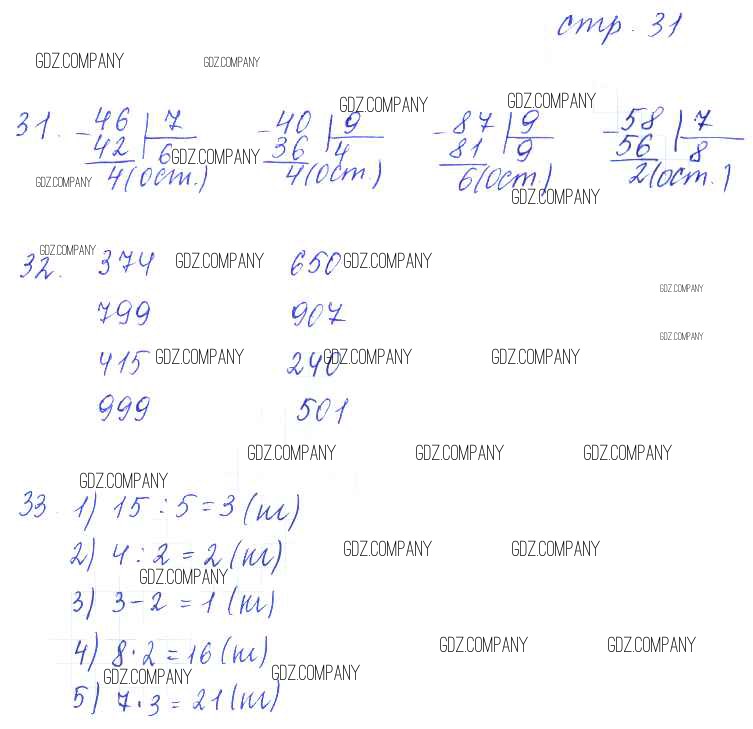 стр. 31
GDZ.COMPANY GDZ.COMPANY
GDZ.COMPANY GDZ.COMPANY
31. -46 | 7 -40 | 9 -87 | 9 -58 | 7
42 6 36 4 81 9 56 8
GDZ.COMPANY
4(ост.) 4(ост.) 6(ост) 2(ост.)
GDZ.COMPANY GDZ.COMPANY
GDZ.COMPANY
32. 374 GDZ.COMPANY 650 GDZ.COMPANY
GDZ.COMPANY
799 907
GDZ.COMPANY
415 GDZ.COMPANY 240 GDZ.COMPANY GDZ.COMPANY
999 501
GDZ.COMPANY GDZ.COMPANY GDZ.COMPANY
GDZ.COMPANY
33. 1) 15 : 5 = 3 (м)
2) 4 : 2 = 2 (м) GDZ.COMPANY GDZ.COMPANY
GDZ.COMPANY
3) 3 - 2 = 1 (м)
GDZ.COMPANY GDZ.COMPANY
4) 8 · 2 = 16 (м)
GDZ.COMPANY GDZ.COMPANY
5) 7 · 3 = 21 (м)